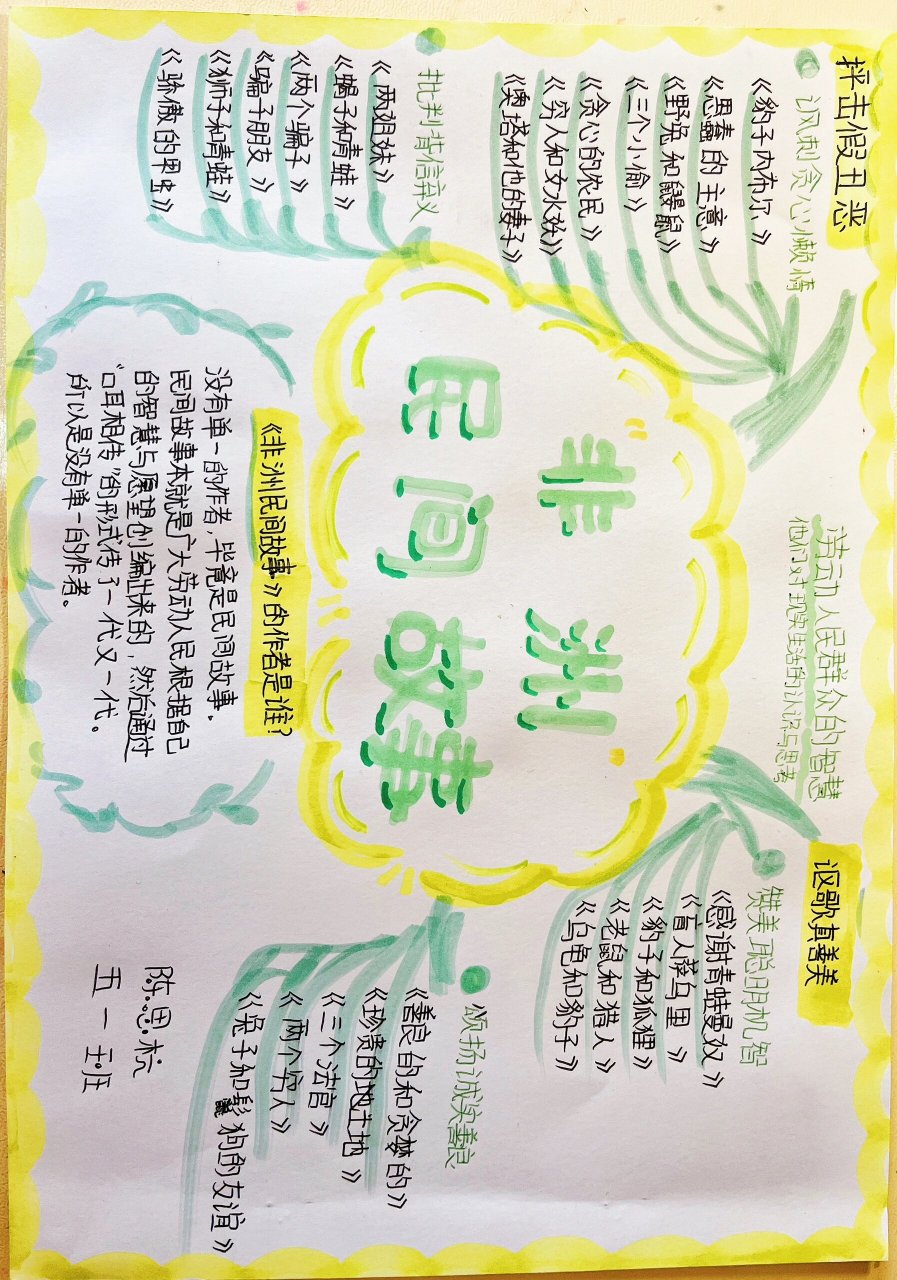 抨击假丑恶
讽刺贪心懒惰
《豹子内布尔》
《愚蠢的主意》
《野兔和鼹鼠》
《三个小偷》
《贪心的农民》
《穷人和女水妖》
《奥塔和他的妻子》
批判背信弃义
《两姐妹》
《蝎子和青蛙》
《两个骗子》
《骗子朋友》
《狮子和青蛙》
《骄傲的甲虫》
劳动人民群众的智慧
他们对现实生活的认识与思考
非洲
民间故事
讴歌真善美
赞美聪明机智
《感谢青蛙曼奴》
《盲人萨乌里》
《豹子和狐狸》
《老鼠和猎人》
《乌龟和豹子》
颂扬诚实善良
《善良的和贪婪的》
《珍贵的地土地》
《三个法官》
《两个穷人》
《兔子和鬃狗的友谊》
《非洲民间故事》的作者是谁?
没有单一的作者,毕竟是民间故事。
民间故事本就是广大劳动人民根据自己
的智慧与愿望创编出来的,然后通过
“口耳相传”的形式传了一代又一代。
所以是没有单一的作者。
陈思杭
五一班